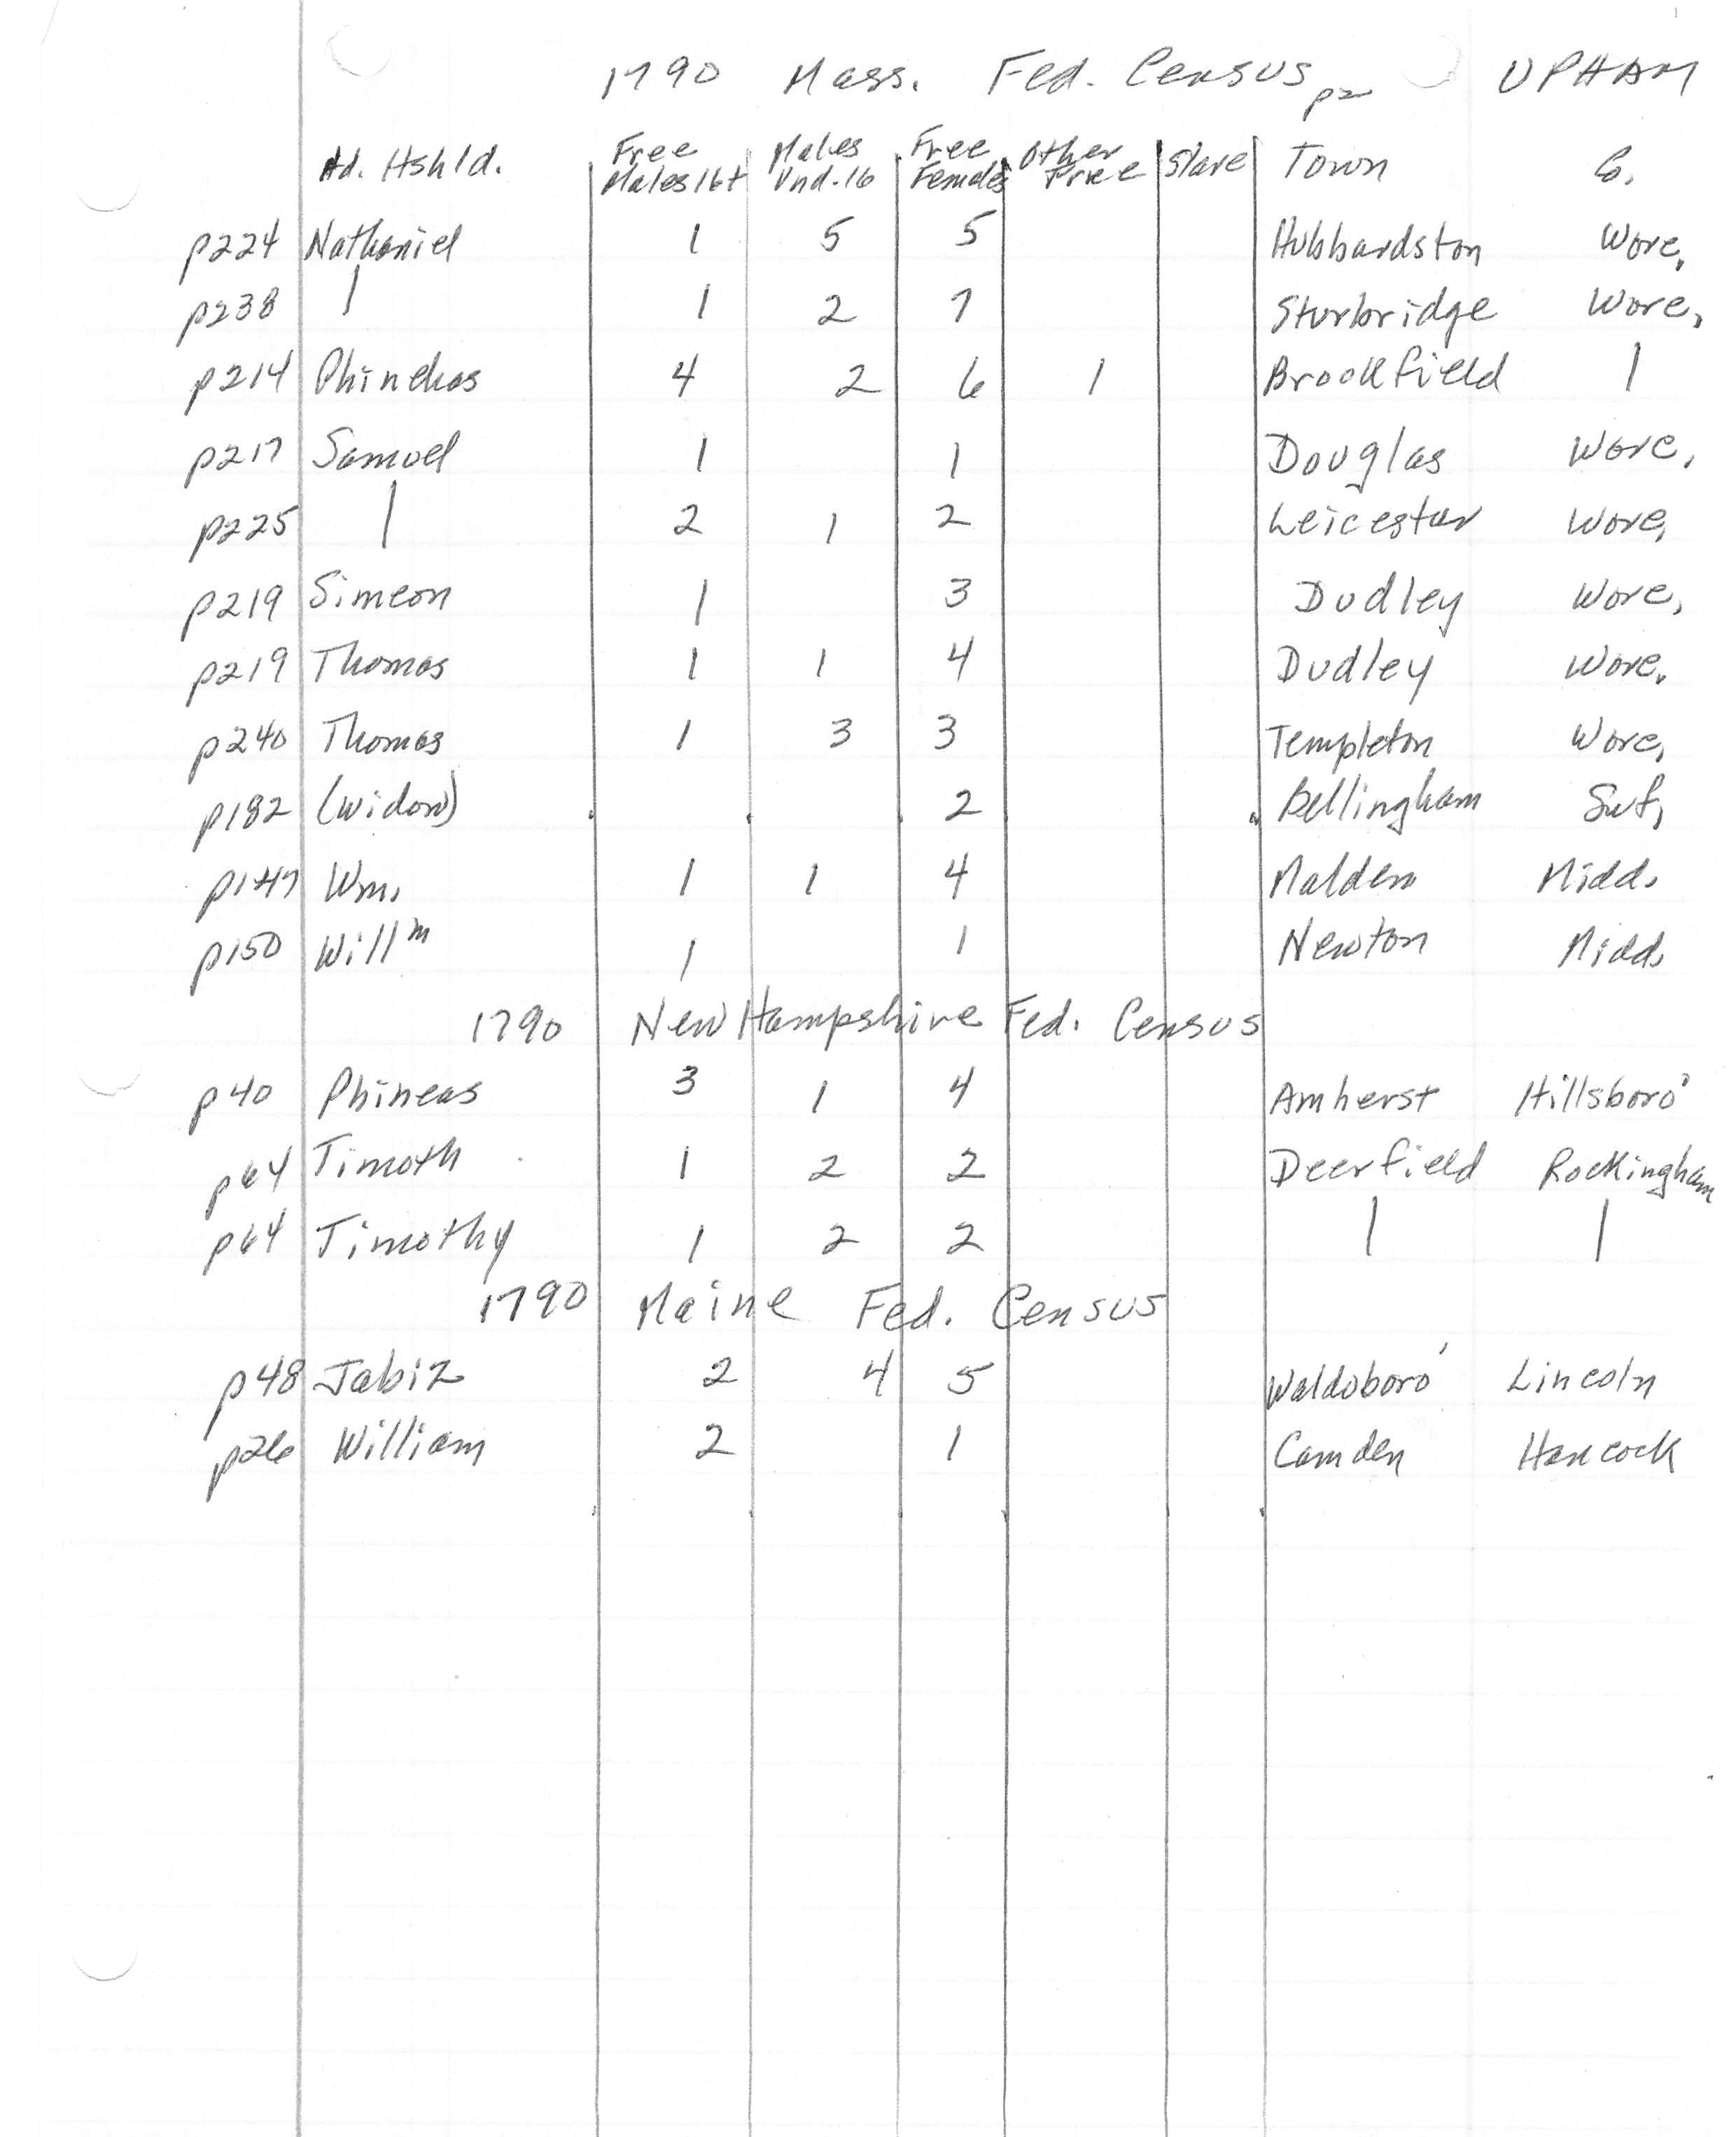 1790 Mass. Fed. Census p2 UPHAM
Hd. Hshld. Free Males 16+ Males Und. 16 Free Females Other Free Slave Town Co.
p224 Nathaniel 1 5 5 Hubbardston Worc.
p238 | 1 2 7 Sturbridge Worc.
p214 Phinehas 4 2 6 1 Brookfield |
p217 Samuel 1 1 Douglas Worc.
p225 | 2 1 2 Leicester Worc.
p219 Simeon 1 3 Dudley Worc.
p219 Thomas 1 1 4 Dudley Worc.
p240 Thomas 1 3 3 Templeton Worc.
p182 (widow) 2 Bellingham Suf.
p147 Wm. 1 1 4 Malden Midd.
p150 Willm 1 1 Newton Midd.
1790 New Hampshire Fed. Census
p40 Phineas 3 1 4 Amherst Hillsboro'
p64 Timoth 1 2 2 Deerfield Rockingham
p64 Timothy 1 2 2 | |
1790 Maine Fed. Census
p48 Jabiz 2 4 5 Waldoboro' Lincoln
p26 William 2 1 Camden Hancock